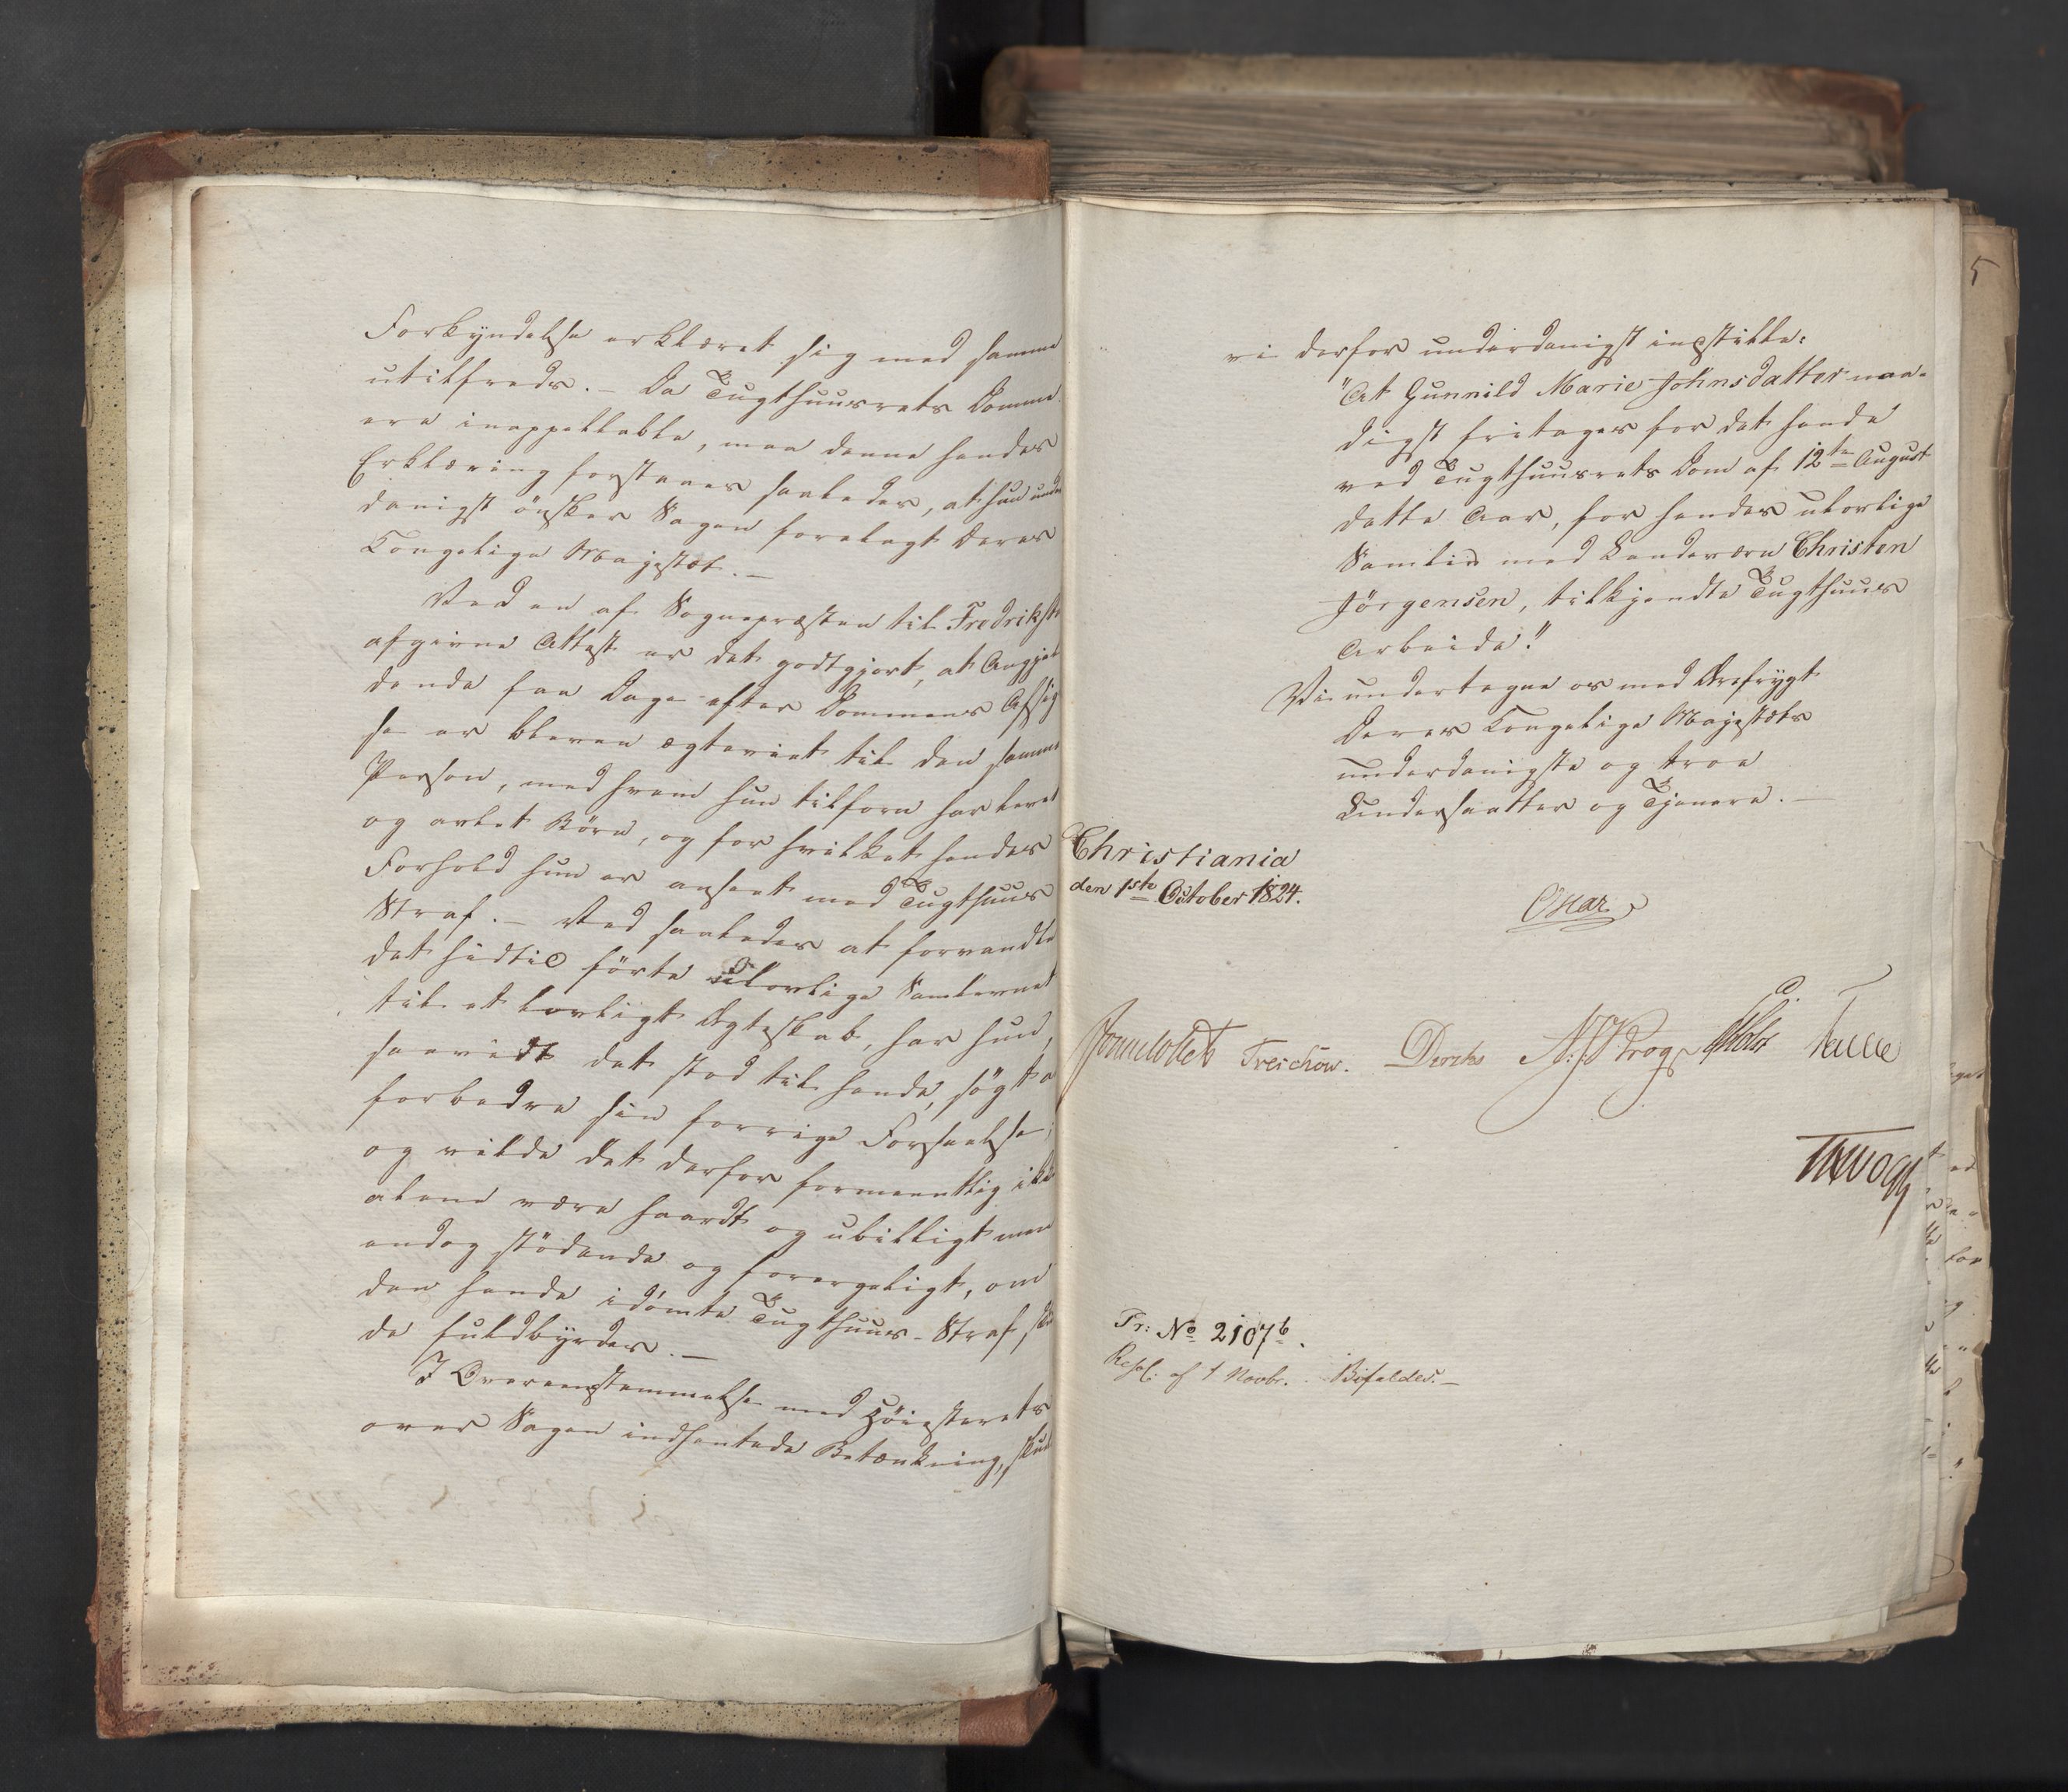 Forkyndelse erklæret sig med samme
utilfreds. – Da Tugthuusrets Domme
ere inappellable, maa denne hendes
Erklæring forstaaes saaledes, at hun under
danigst önsker Sagen forelagt Deres
Kongelige Majestæt. –
Ved en af Sognepræsten til Fredrikst
afgiven Attest er det godtgjort, at Angjel
dende faa Dage efter Dommens Afsig
se er bleven ægteviet til den samme
Person, med hvem hun tilforn har levet
og avlet Börn, og for hvilket hendes
Forhold hun er anseet med Tugthuus
Straf. – Ved saaledes at forvandle
det hidtil förte ulovlige Samlevnet
til et lovligt Ægteskab, har hun,
saavidt det stod til hende, sögt a
forbedre sin forrige Forseelse;
og vilde det derfor formeentlig ikke
alene være haardt og ubilligt men
endog stödende og forargeligt, om
den hende idömte Tugthuus-Straf skul
de fuldbyrdes. –
I Overeensstemmelse med Höiesterets
over Sagen indhentede Betænkning, skulle
5
vi derfor underdanigst indstille:
"At Gunnild Marie Johnsdatter naa-
digst fritages for det hende
ved Tugthuusrets Dom af 12te August
dette Aar, for hendes ulovlige
Samliv med Landværn Christen
Jörgensen, tilkjendte Tugthuus
Arbeide."
Vi undertegne os med Ærefrygt
Deres Kongelige Majestæts
underdanigste og troe
Undersaatter og Tjenere. –
Christiania
den 1ste October 1824.
Oscar
Sommerhielm Treschow. Diriks A: J Krog Holst Fasting
Th Vogt
Fr: No 2107b.
Resol: af 1 Novbr. Bifaldes. –